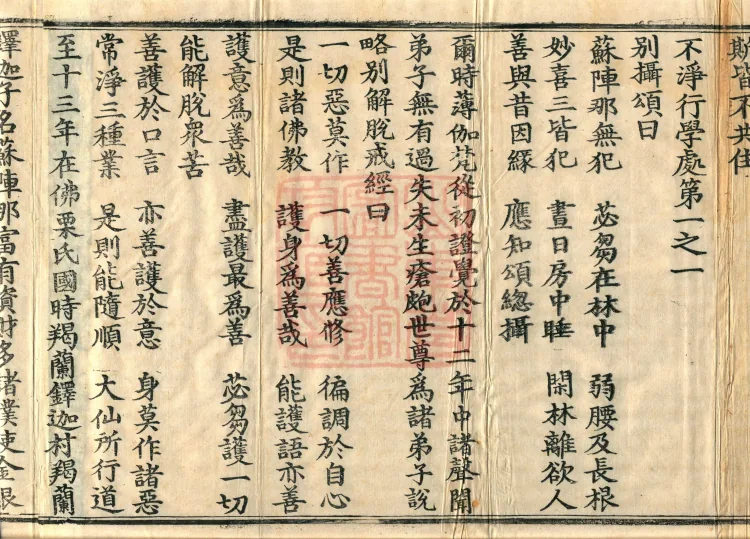 皆不共住
不淨行學處第一之一
別攝頌曰
蘇陣那無犯　苾芻在林中　弱腰及長根
妙喜三皆犯　晝日房中睡　閑林離欲人
善與昔因緣　應知頌緫攝
爾時薄伽梵從初證覺於十二年中諸聲聞
弟子無有過失未生瘡皰世尊爲諸弟子說
略別解脫戒經曰
一切惡莫作　一切善應修　徧調於自心
是則諸佛教　護身爲善哉　能護語亦善
護意爲善哉　盡護最爲善　苾芻護一切
能解脫衆苦
善護於口言　亦善護於意　身莫作諸惡
常淨三種業　是則能隨順　大仙所行道
至十三年在佛栗氏國時羯蘭鐸迦村羯蘭
鐸迦子名蘇陣那富有資財多諸僕使金銀